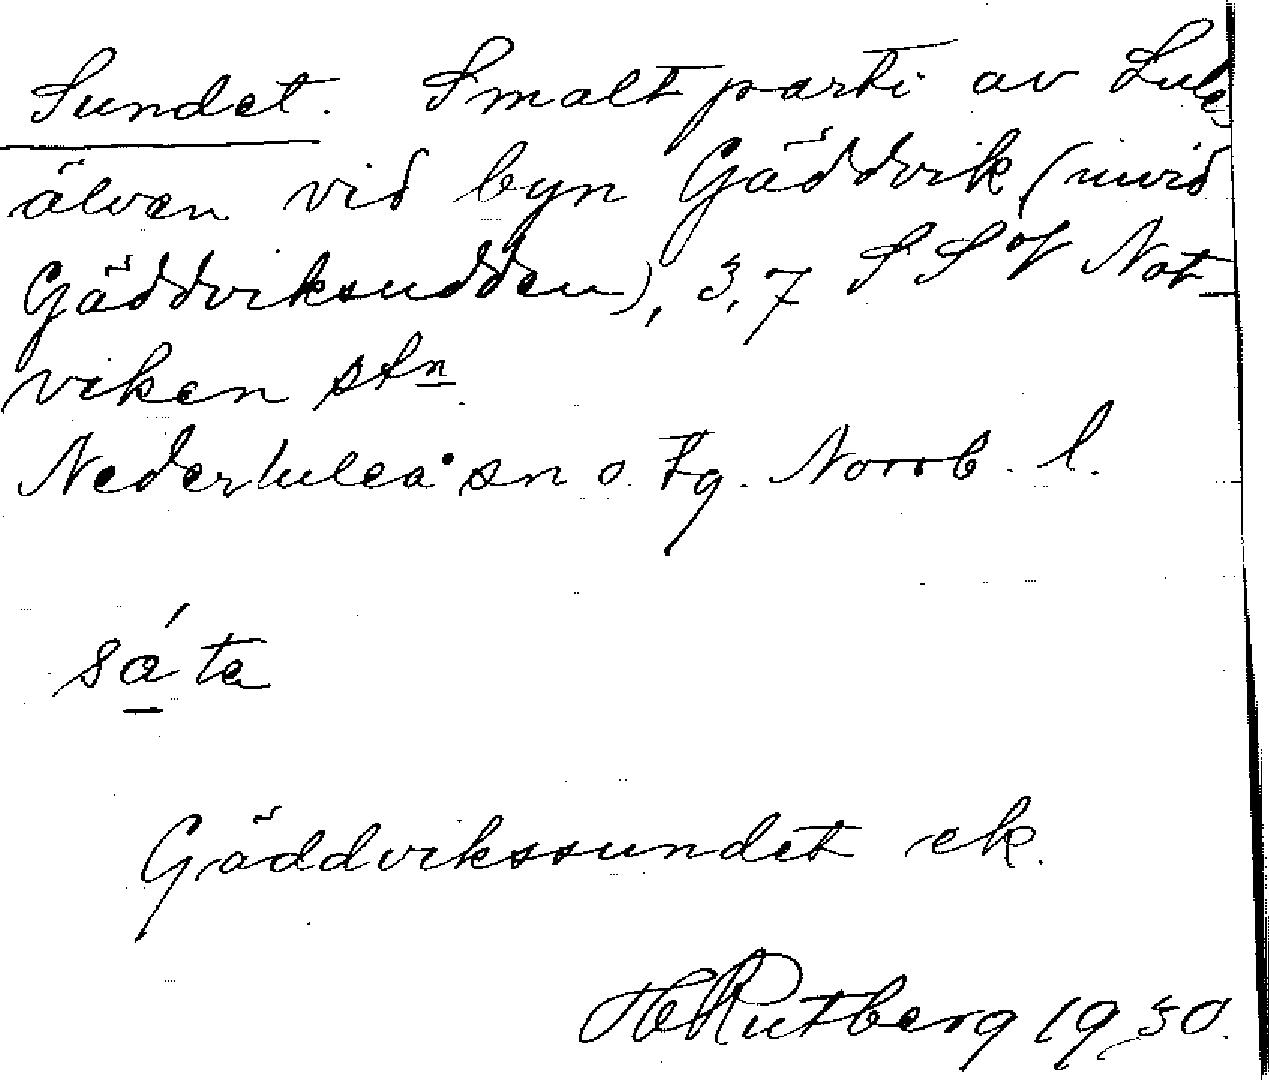 Sundet. Smalt parti av Lule
älven vid byn Gäddvik (invid
Gäddviksudden), 3,7 SSV Not-
viken stn
Nederluleå sn o. tg. Norrb. l.
sá ta
Gäddvikssundet ek.
HRutberg 1930.